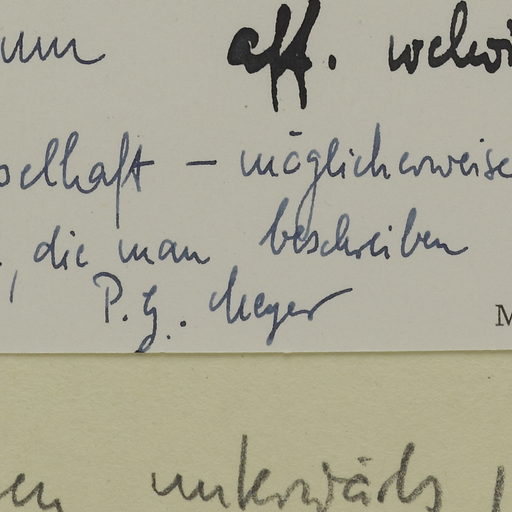 aff.
– möglicherweise
, die man beschreiben
P. G. Meyer
M
unterwärts